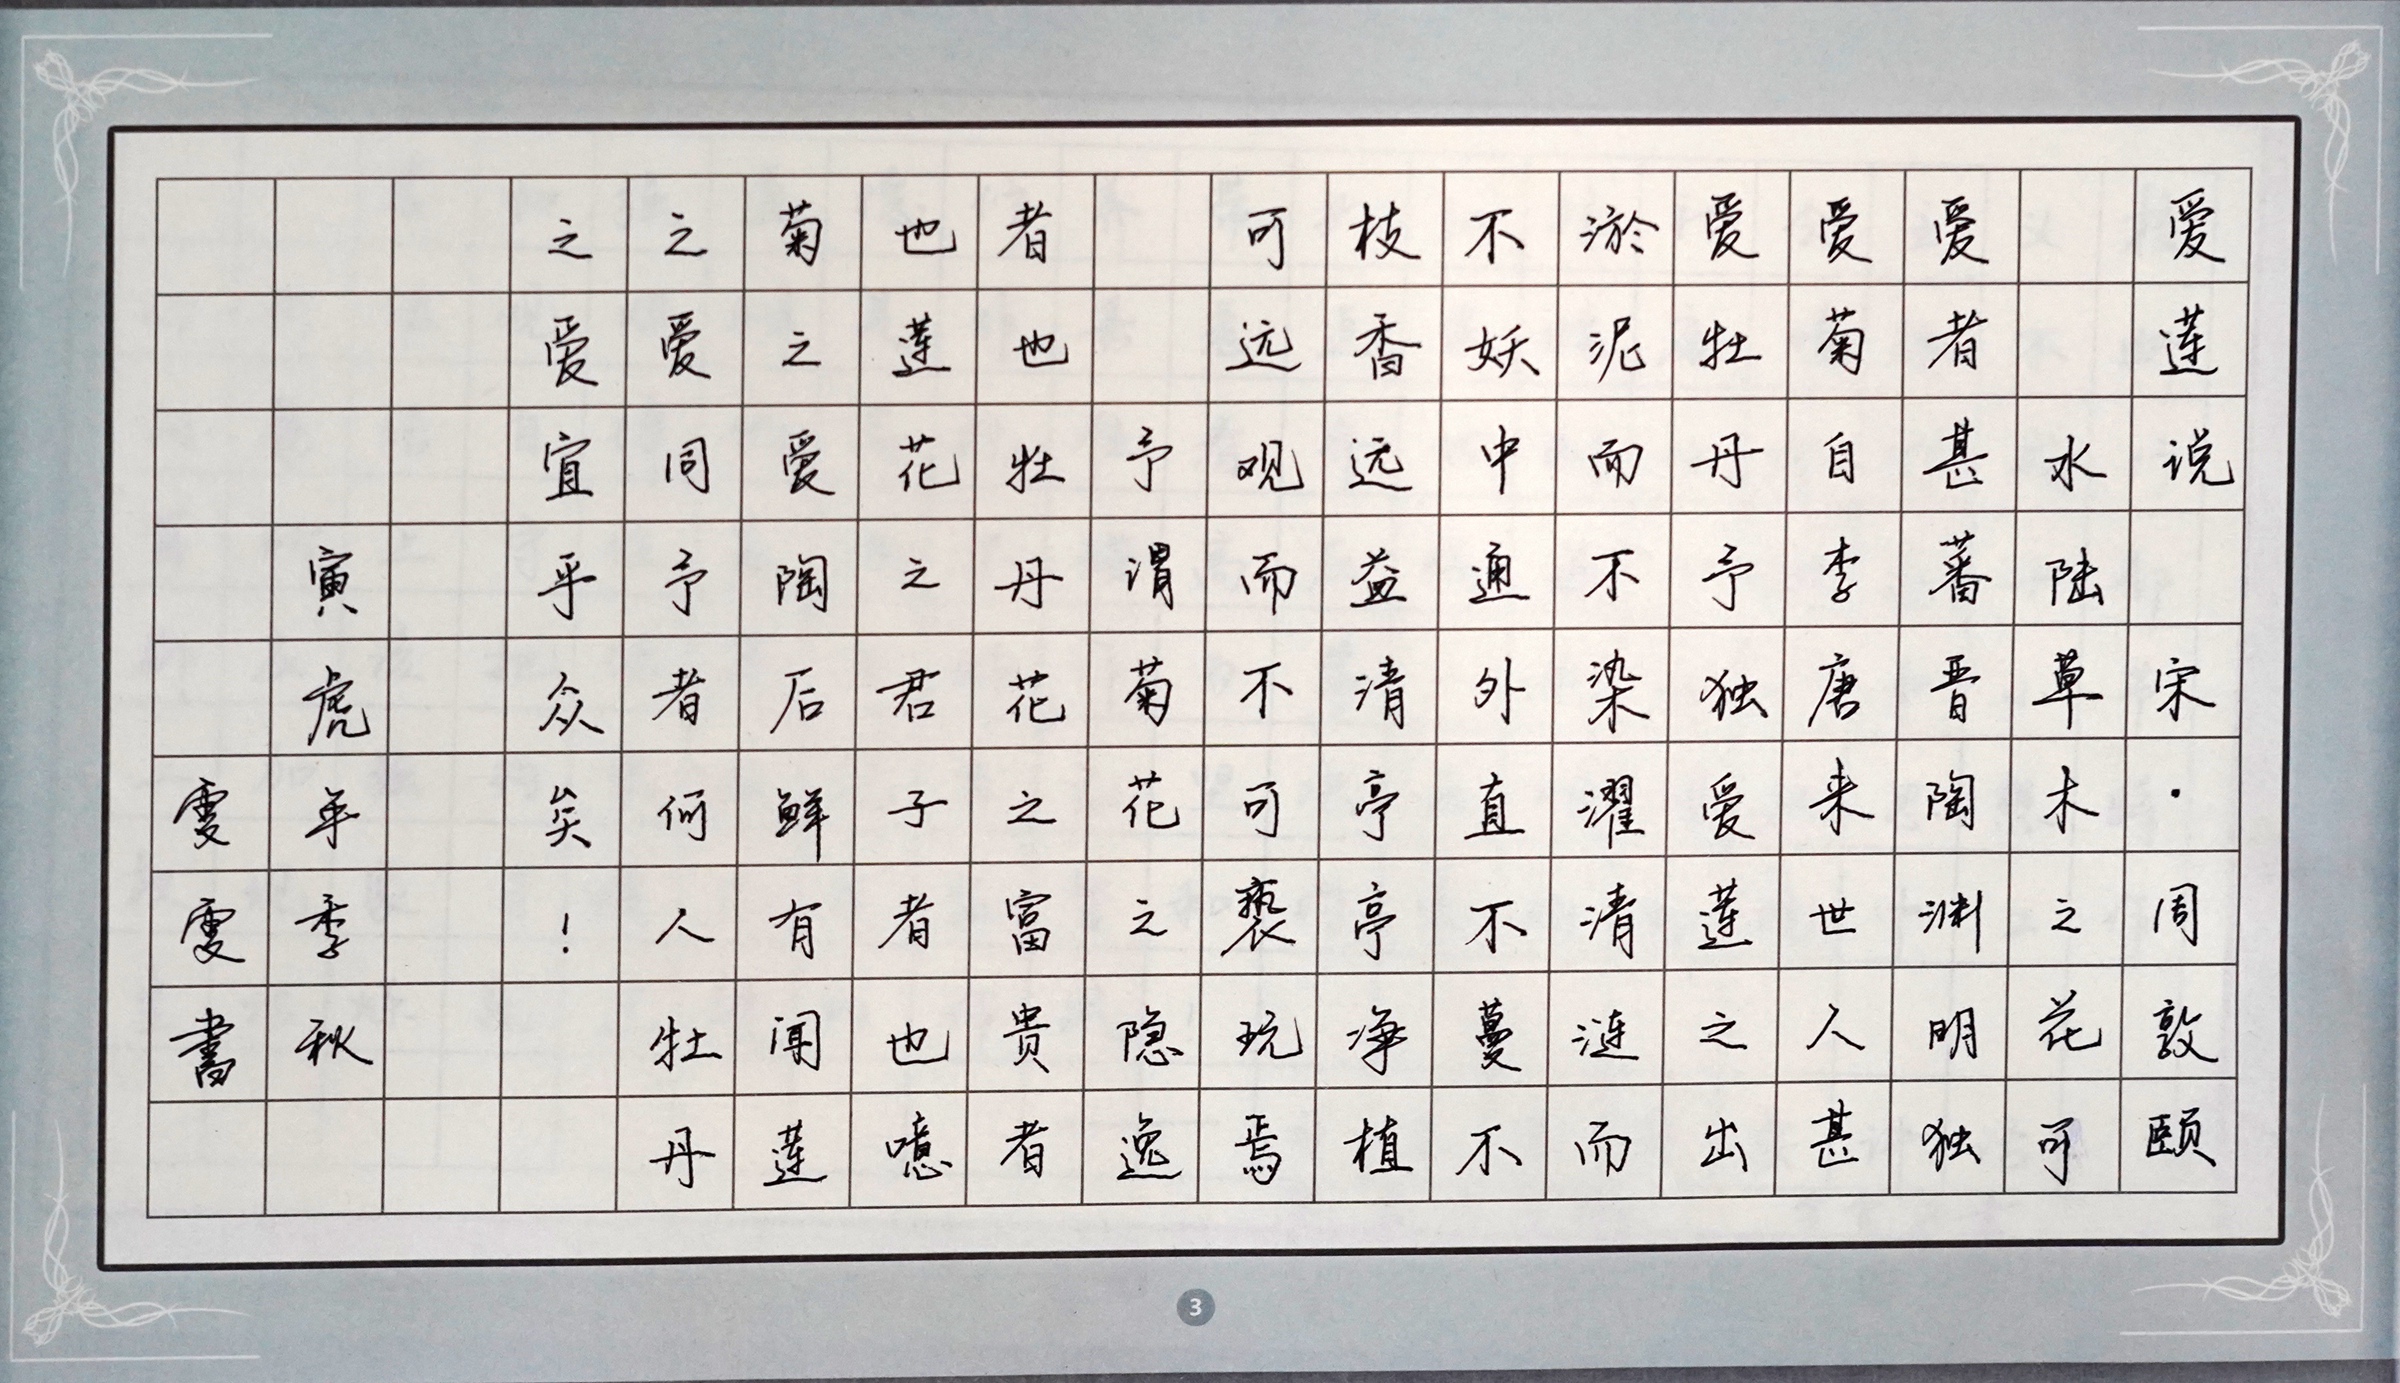 爱莲说 宋·周敦颐
水陆草木之花可
爱者甚蕃晋陶渊明独
爱菊自李唐来世人甚
爱牡丹予独爱莲之出
淤泥而不染濯清涟而
不妖中通外直不蔓不
枝香远益清亭亭净植
可远观而不可亵玩焉
予谓菊花之隐逸
者也牡丹花之富贵者
也莲花之君子者也噫
菊之爱陶后鲜有闻莲
之爱同予者何人牡丹
之爱宜乎众矣!
寅虎年季秋
書
3